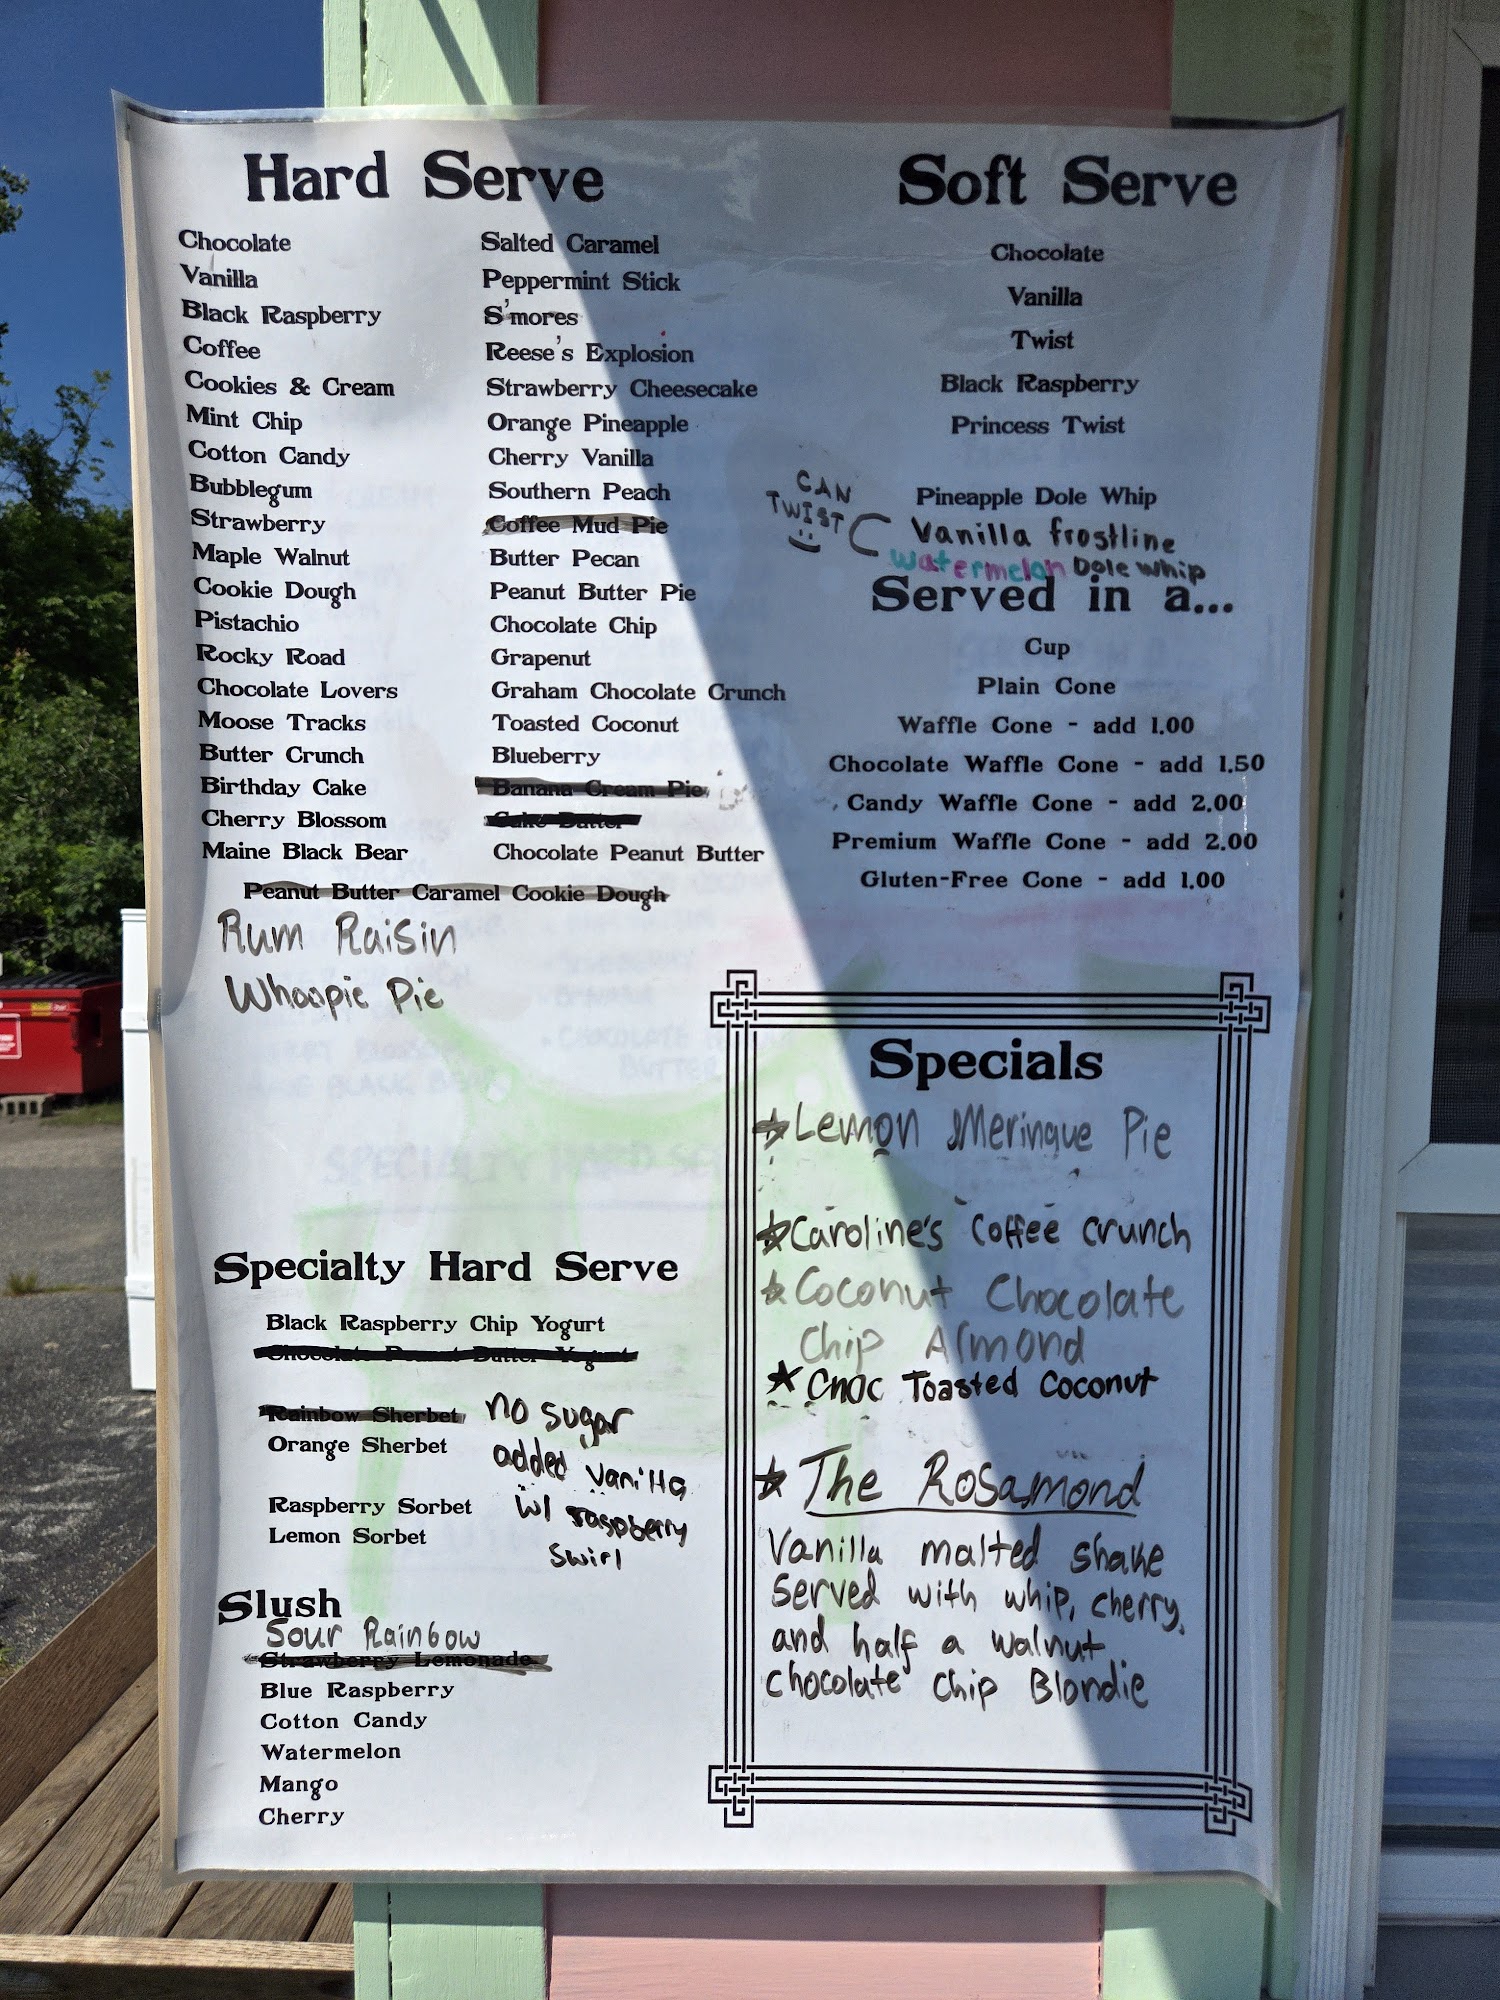 Hard Serve
Chocolate
Vanilla
Black Raspberry
Coffee
Cookies & Cream
Mint Chip
Cotton Candy
Bubblegum
Strawberry
Maple Walnut
Cookie Dough
Pistachio
Rocky Road
Chocolate Lovers
Moose Tracks
Butter Crunch
Birthday Cake
Cherry Blossom
Maine Black Bear
Salted Caramel
Peppermint Stick
S'mores
Reese's Explosion
Strawberry Cheesecake
Orange Pineapple
Cherry Vanilla
Southern Peach
Coffee Mud Pie
Butter Pecan
Peanut Butter Pie
Chocolate Chip
Grapenut
Graham Chocolate Crunch
Toasted Coconut
Blueberry
Banana Cream Pie
Cake Batter
Chocolate Peanut Butter
Peanut Butter Caramel Cookie Dough
Rum Raisin
Whoopie Pie
Specialty Hard Serve
Black Raspberry Chip Yogurt
Chocolate Peanut Butter Yogurt
Rainbow Sherbet
Orange Sherbet
Raspberry Sorbet
Lemon Sorbet
no sugar
added vanilla
w/ raspberry
swirl
Slush
Sour Rainbow
Strawberry Lemonade
Blue Raspberry
Cotton Candy
Watermelon
Mango
Cherry
Soft Serve
Chocolate
Vanilla
Twist
Black Raspberry
Princess Twist
CAN
TWIST
Pineapple Dole Whip
Vanilla frostline
Watermelon Dole whip
Served in a...
Cup
Plain Cone
Waffle Cone - add 1.00
Chocolate Waffle Cone - add 1.50
Candy Waffle Cone - add 2.00
Premium Waffle Cone - add 2.00
Gluten-Free Cone - add 1.00
Specials
Lemon Meringue Pie
Caroline's Coffee Crunch
Coconut Chocolate
Chip Almond
Choc Toasted Coconut
The Rosamond
Vanilla malted shake
served with whip, cherry,
and half a walnut
chocolate chip Blondie